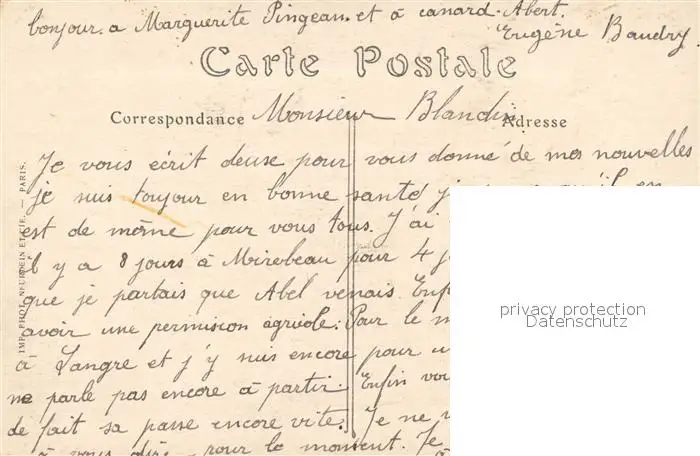 bonjour a Marguerite Pingeau. et à canard. Abert.
Eugène Baudry.
Carte Postale
Correspondance
Adresse
Monsieur Blandin
Je vous écrit deuse pour vous donné de mes nouvelles
je suis toujour en bonne santé
est de même pour vous tous. J'ai
il y a 8 jours à Mirebeau pour 4
que je partais que Abel venais.
avoir une permision agriole. Pour le
à Langre et j'y suis encore pour
ne parle pas encore à partir. Enfin
de fait sa passe encore vite. Je ne
à vous dire pour le moment. Je
IMP. PHOT. NEURDEIN ET CIE. — PARIS.
privacy protection
Datenschutz